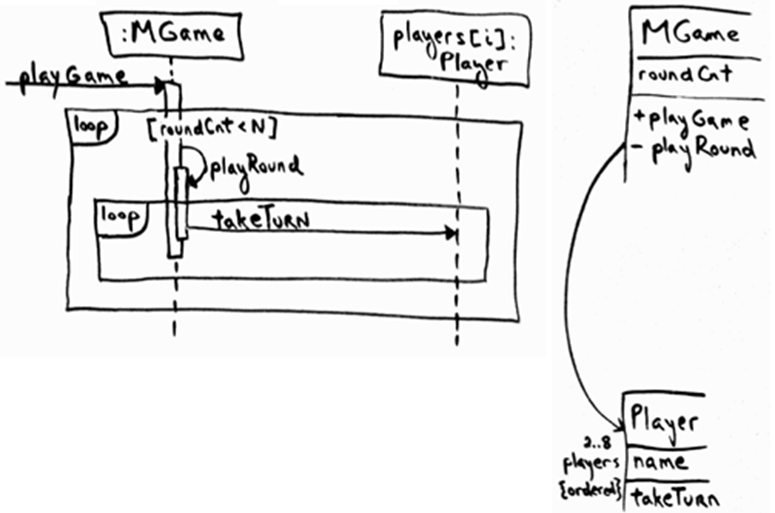 :MGame
players[i]:
Player
playGame
loop
[roundCnt<N]
playRound
loop
takeTURN
MGame
roundCnt
+playGame
- playRound
Player
2..8
players
{ordered}
name
takeTurn